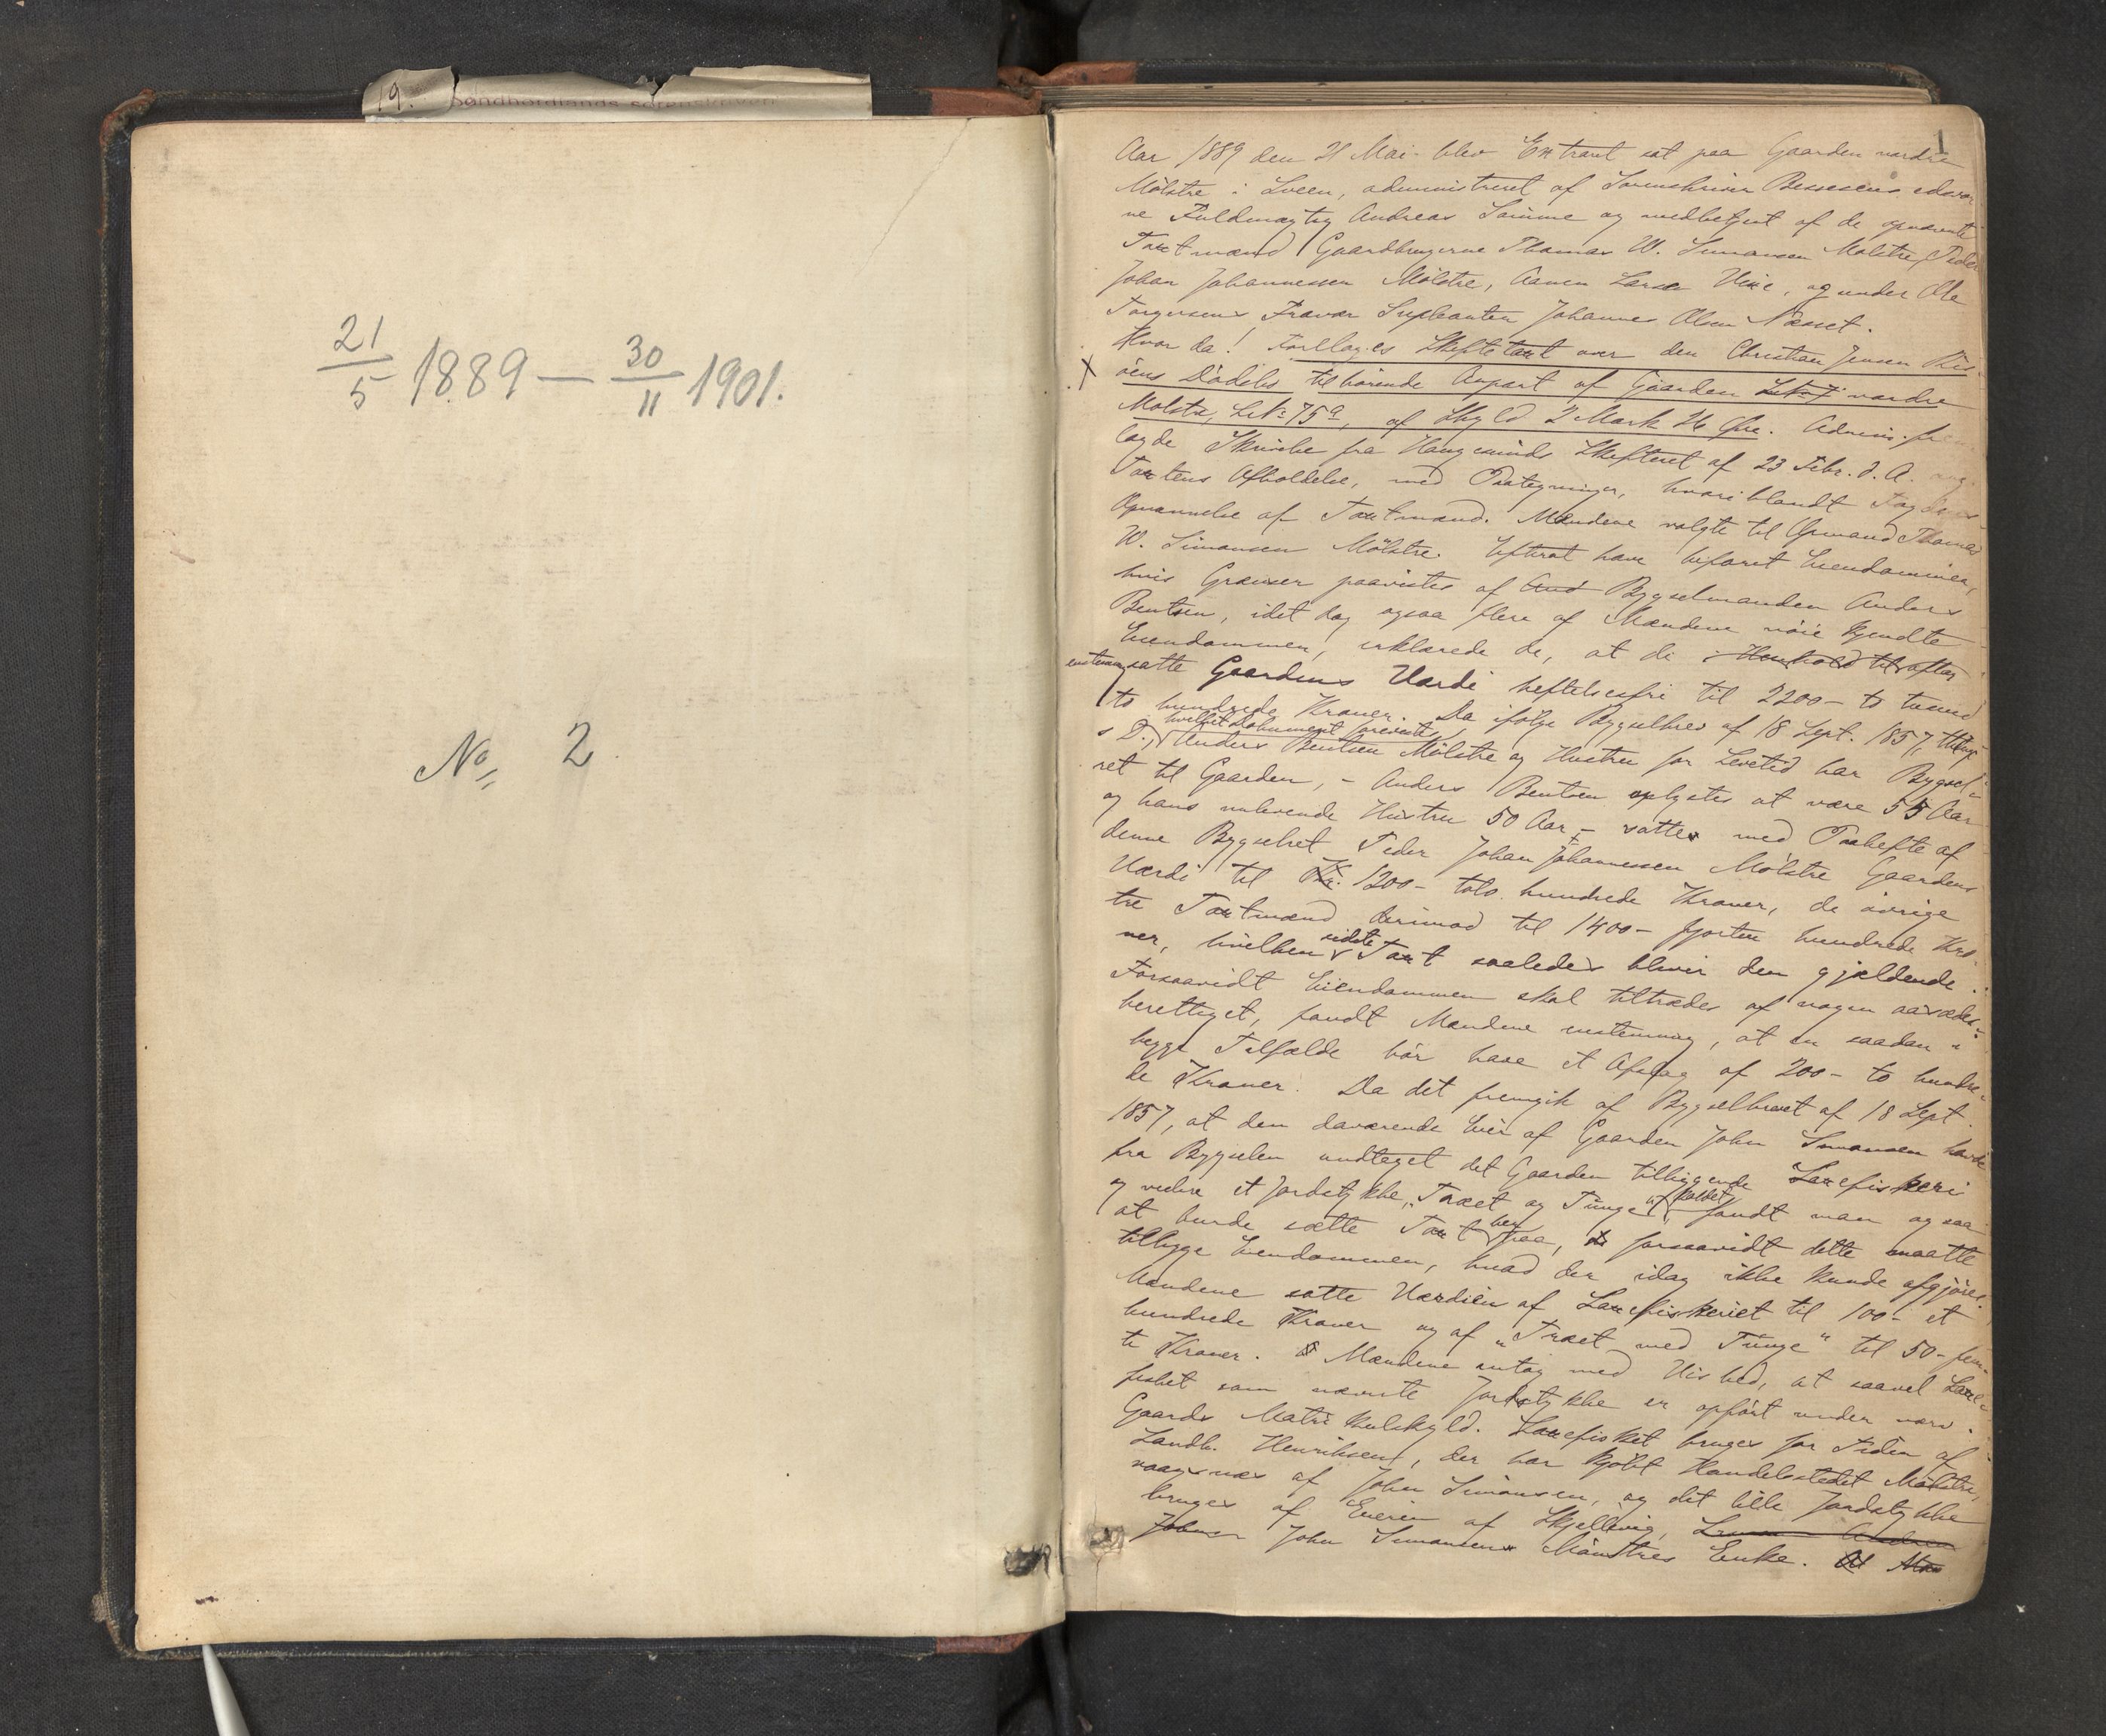 19. Søndhordlands sorenskriveri
21/5 1889 — 30/11 1901.
No 2
1
Aar 1889 den 21 Mai blev Extraret sat paa Gaarden nordre
Mölstre i Sveen, administreret af Sorenskriver Bessesens edsvor
ne Fuldmægtig Andreas Sömme og medbetjent af de opnævnte
Taxtmænd Gaardbrugerne Thomas W. Simonsen Mölstre, Peder
Johan Johannessen Mölstre, Aamen Larsen Vixe, og under Ole
Torgersens Fravær Supleanten Johannes Olsen Næsset.
Hvor da! Foretoges Skiftetaxt over den Christian Jensen Ris-
öens Dödsbo tilhørende Anpart af Gaarden nordre
Molstre, Lbn 75a, af Skyld 2 Mark 26 Øre. Admin. frem
lagde Skrivelse fra Haugesunds Skifteret af 23 Febr. d. A. ang.
Taxtens Afholdelse, med Paategninger, hvoriblandt Fogdens
Opnævnelse af Taxtmænd. Mændene valgte til Formand Thomas
W. Simonsen Mölstre. Efterat have befaret Eiendommen,
hvis Grænser paavistes af And Bygselmanden Anders
Bentsen, idet dog ogsaa flere af Mændene nöie kjendte
Eiendommen, erklærede de, at de i Henhold til aftag
enstemmig satte Gaardens Værdi heftelsesfri til 2200 - to tusind
to hundrede Kroner. Da ifølge Bygselbrev af 18 Sept. 1857, thingl.
hvilket Dokument foreviste
s. D., Anders Bentsen Mölstre og Hustru for Levetid har Bygsel-
ret til Gaarden, - Anders Bentsen oplystes at være 55 Aar
og hans nulevende Hustru 50 Aar, - sattes med Paahefte af
denne Bygselret Peder Johan Johannessen Mölstre Gaardens
Værdi til Kr. 1200 - tolv hundrede Kroner, de øvrige
tre Taxtmænd derimod til 1400 - fjorten hundrede Kro-
sidste
ner, hvilken Taxt saaledes bliver den gjældende.
Forsaavidt Eiendommen skal tiltrædes af nogen aasædes-
berettiget, fandt Mændene enstemmig, at en saadan i
begge Tilfælde bör have et Afslag af 200 - to hundre-
de Kroner. Da det fremgik af Bygselbrevet af 18 Sept.
1857, at den daværende Eier af Gaarden John Simonsen havde
fra Bygselen undtaget det Gaarden tilliggende Laxefiskeri
kaldet
og videre et Jordstykke, "Træet og Tunge", fandt man ogsaa
her
at burde sætte Taxt paa, forsaavidt dette maatte
tilligge Eiendommen, hvad der idag ikke kunde afgjöres.
Mændene satte Værdien af Laxefiskeriet til 100 - et
hundrede Kroner og af "Træet med Tunge" til 50 - fem-
ti Kroner. Mændene antog med Vished, at saavel Laxe-
fisket som nævnte Jordstykke er opført under nærv.
Gaards Matrikulskyld. Laxefisket bruges for Tiden af
Landh. Henriksen, der har kjøbt Handelsstedet Mölstre,
vaagsnæs af John Simonsen, og det lille Jordstykke
bruges af Eieren af Skjellevig,
John Simonsens Mölstres Enke.